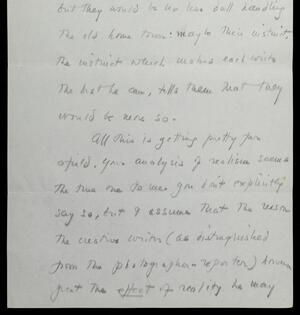 but they would be no less dull handling
the old home town: maybe their instinct,
the instinct which makes each write
the best he can, tells them that they
would be more so.
All this is getting pretty far
afield. Your analysis of realism seems
the true one to me. You don't explicitly
say so, but I assume that the reason
the creative writer (as distinguished
from the photographer-reporter) however
great the effect of reality he may